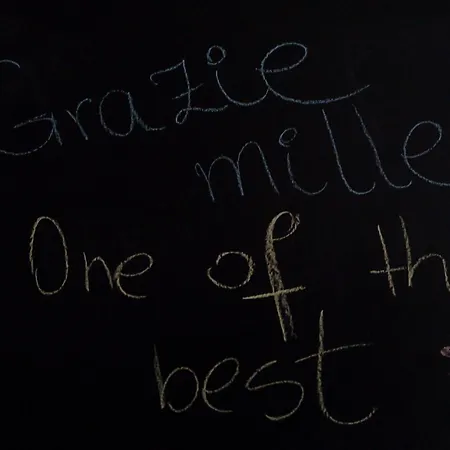 Grazie
mille
One of th
best